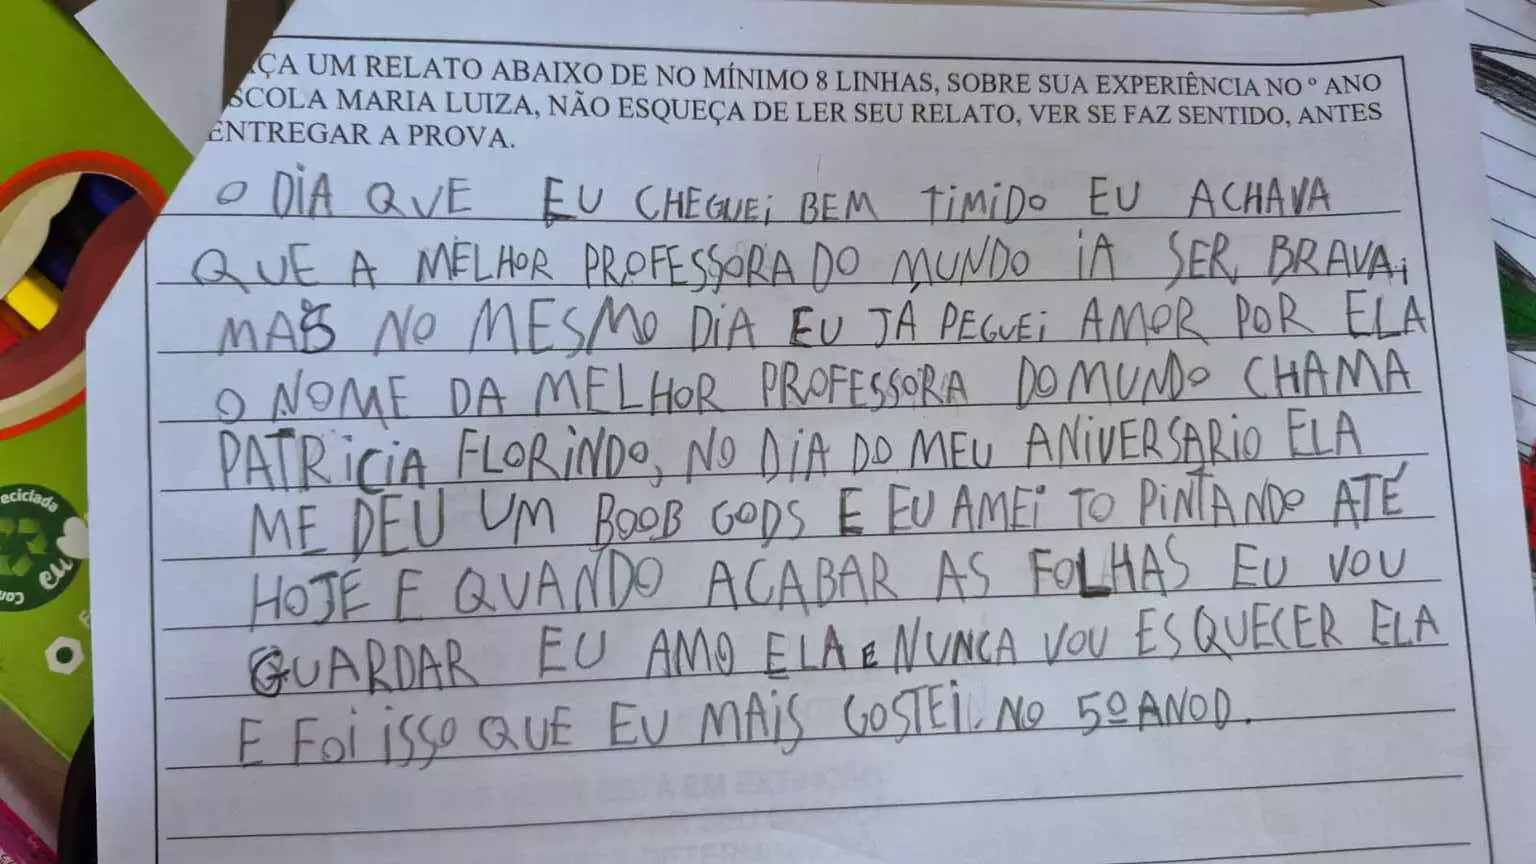 ÇA UM RELATO ABAIXO DE NO MÍNIMO 8 LINHAS, SOBRE SUA EXPERIÊNCIA NO º ANO
SCOLA MARIA LUIZA, NÃO ESQUEÇA DE LER SEU RELATO, VER SE FAZ SENTIDO, ANTES
ENTREGAR A PROVA.
O DIA QUE EU CHEGUEi BEM TiMiDO EU ACHAVA
QUE A MELHOR PROFESSORA DO MUNDO iA SER BRAVA,
MAS NO MESMO DiA EU JÁ PEGUEi AMOR POR ELA
O NOME DA MELHOR PROFESSORA DO MUNDO CHAMA
PATRiCiA FLORiNDO, NO DiA DO MEU ANiVERSARiO ELA
ME DEU UM BOOB GODS E EU AMEi TO PiNTANDO ATÉ
HOJE E QUANDO ACABAR AS FOLHAS EU VOU
GUARDAR EU AMO ELA E NUNCA VOU ESQUECER ELA
E FOi iSSO QUE EU MAiS GOSTEi NO 5º ANOD.
eciclada
eu